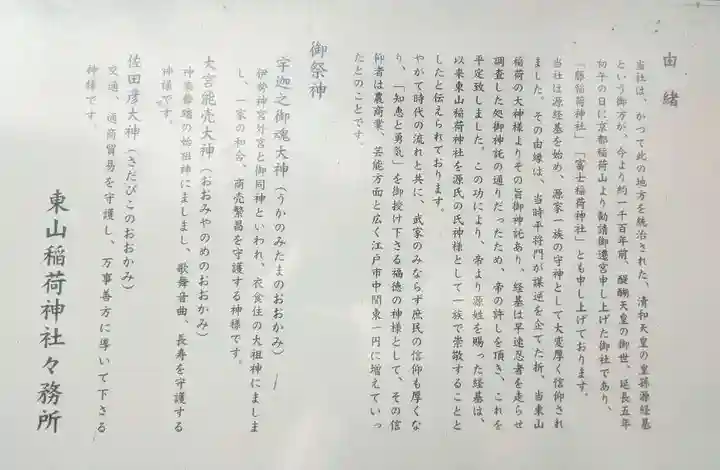 由緒
当社は、かつて此の地方を統治された、清和天皇の皇孫源経基
という御方が、今より約一千百年前、醍醐天皇の御世、延長五年
初午の日に京都稲荷山より勧請御遷宮申し上げた御社であり、
「藤稲荷神社」「富士稲荷神社」とも申し上げております。
当社は源経基を始め、源家一族の守神として大変厚く信仰され
ました。その由縁は、当時平将門が謀逆を企てた折、当東山
稲荷の大神様よりその旨御神託あり。経基は早速忍者を走らせ
調査した処御神託の通りだったため、帝の許しを頂き、これを
平定致しました。この功により、帝より源姓を賜った経基は、
以来東山稲荷神社を源氏の氏神様として一族で崇敬することと
したと伝えられております。
やがて時代の流れと共に、武家のみならず庶民の信仰も厚くな
り、「知恵と勇気」を御授け下さる福徳の神様として、その信
仰者は農商業、芸能方面と広く江戸市中関東一円に増えていっ
たとのことです。
御祭神
宇迦之御魂大神（うかのみたまのおおかみ）
伊勢神宮外宮と御同神といわれ、衣食住の大祖神にましま
し、一家の和合、商売繁昌を守護する神様です。
大宮能売大神（おおみやのめのおおかみ）
神楽舞踊の始祖神にましまし、歌舞音曲、長寿を守護する
神様です。
佐田彦大神（さだびこのおおかみ）
交通、通商貿易を守護し、万事善方に導いて下さる
神様です。
東山稲荷神社々務所